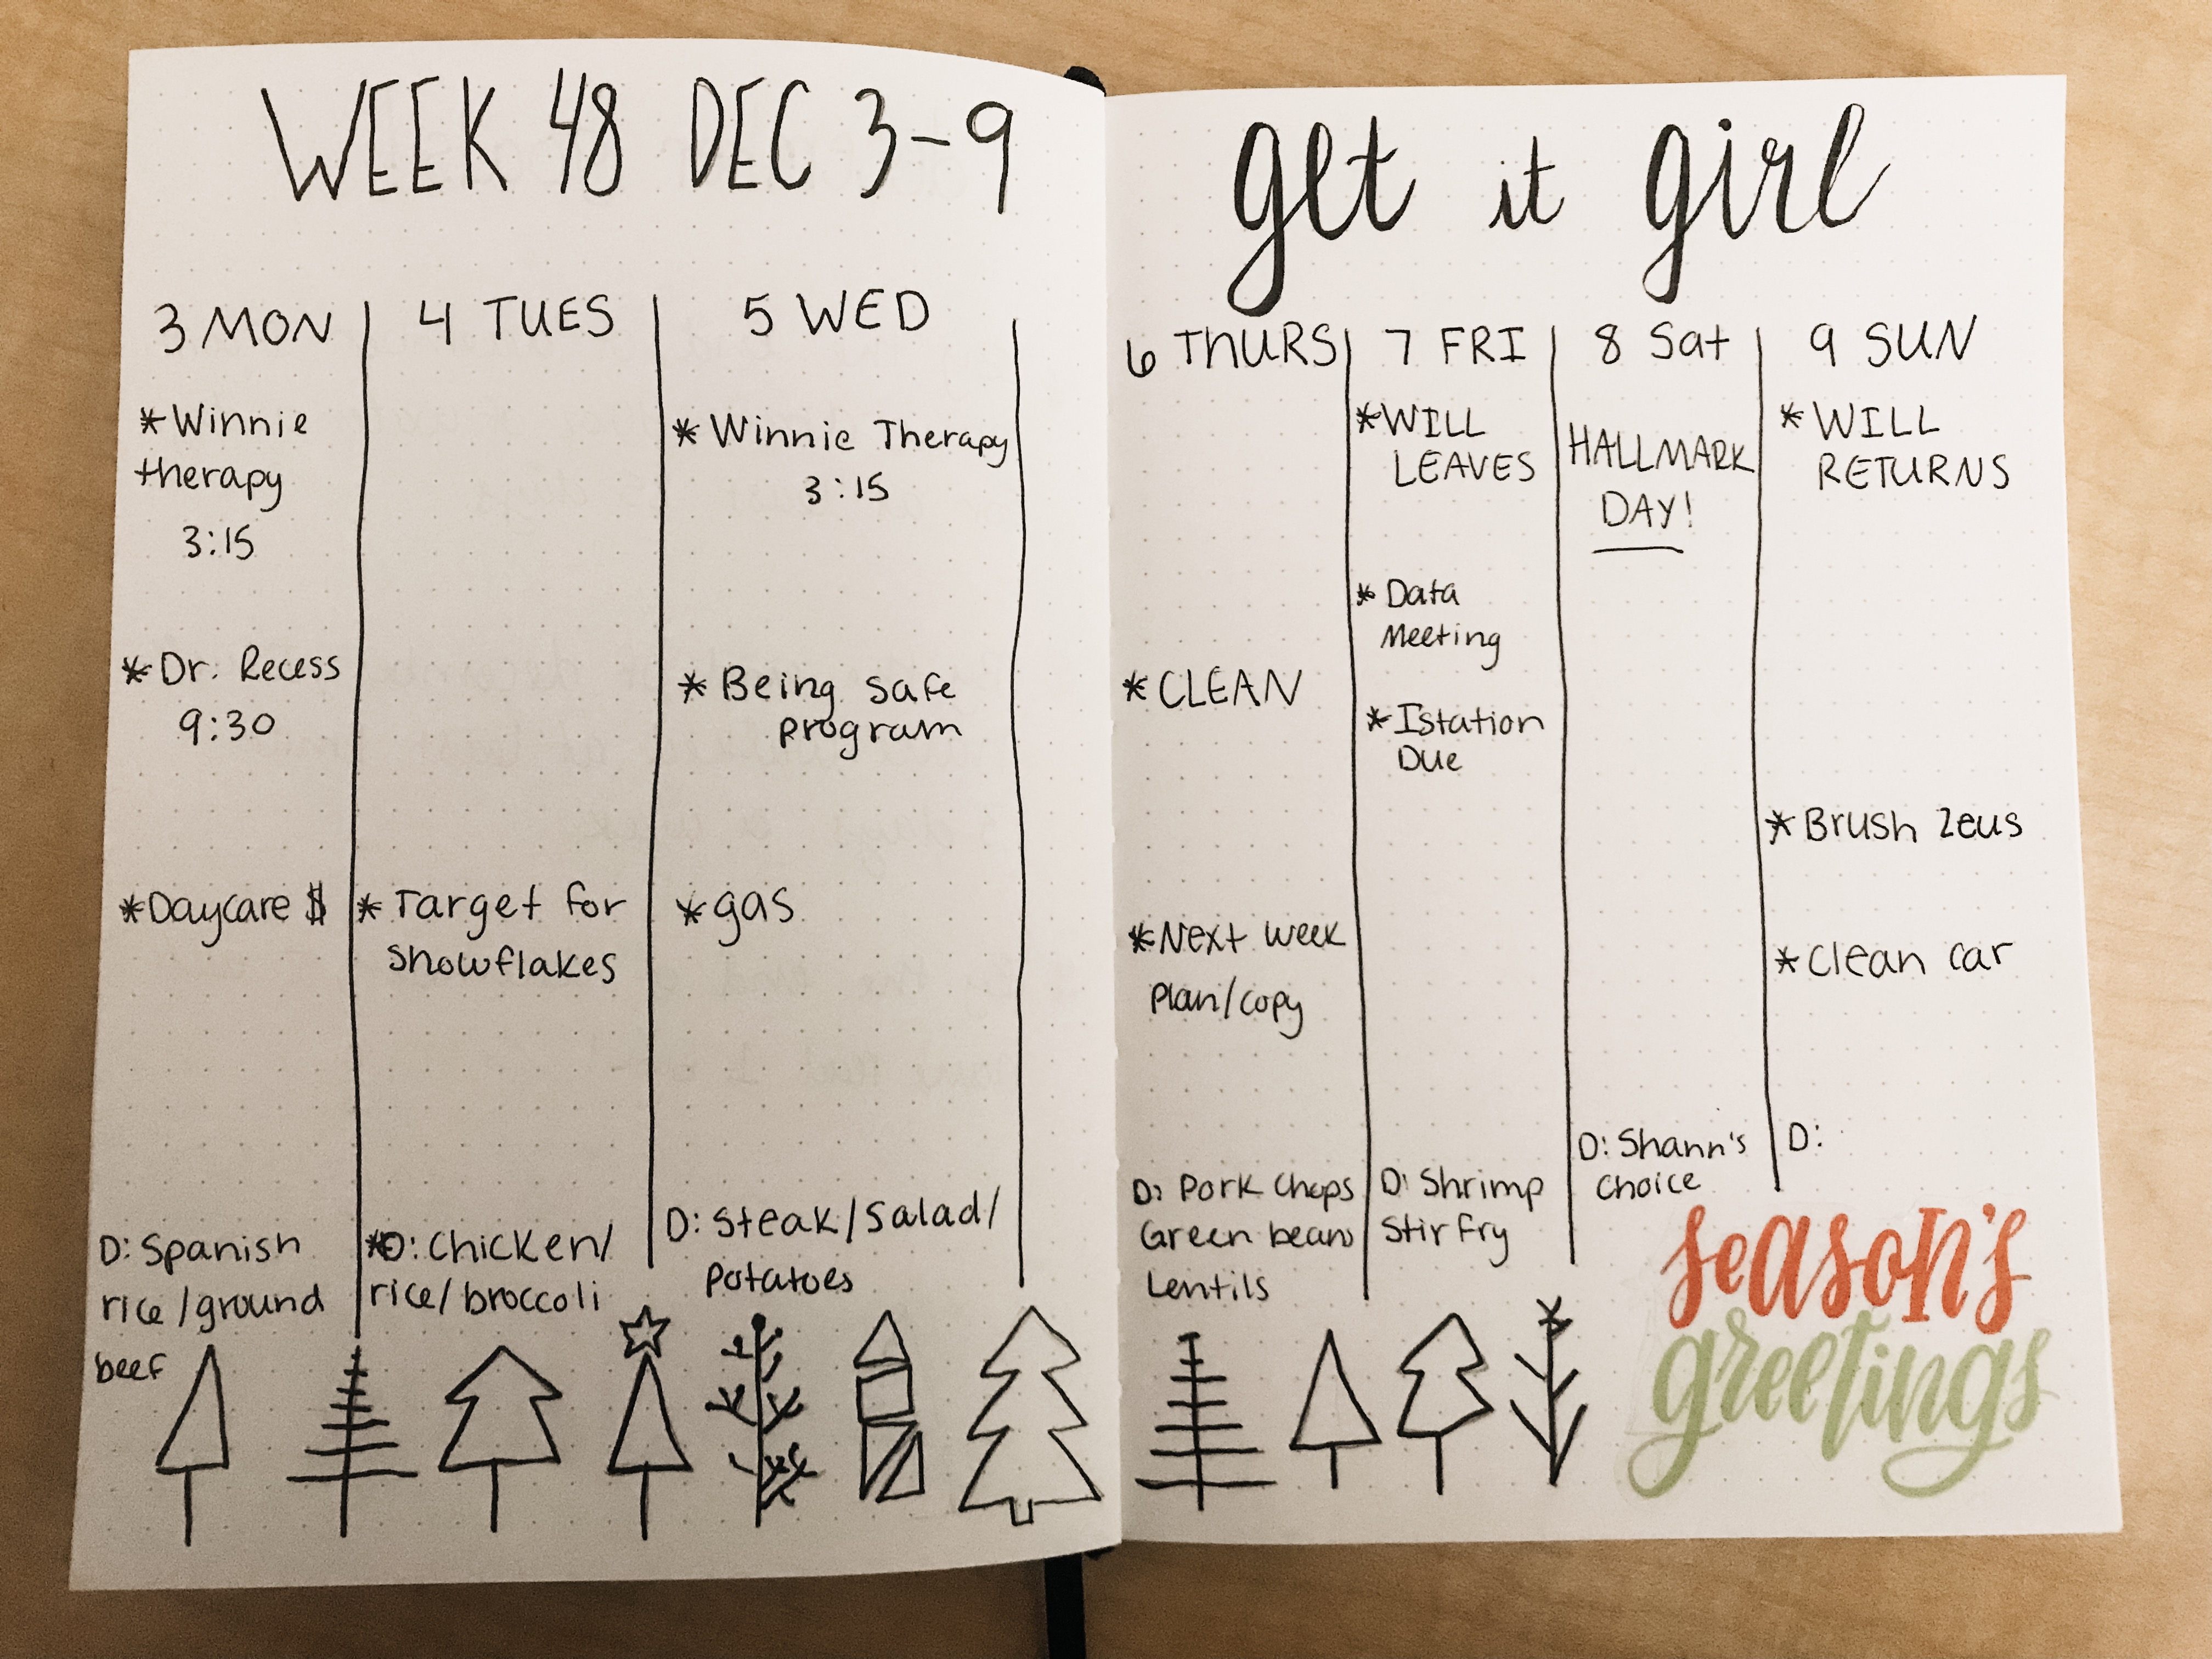 WEEK 48 DEC 3-9
3 MON
*Winnie
therapy
3:15
*Dr. Recess
9:30
*Daycare $
D: Spanish
rice/ground
beef
4 TUES
*Target for
snowflakes
*D: Chicken/
rice/broccoli
5 WED
*Winnie Therapy
3:15
*Being safe
program
*gas
D: Steak/Salad/
potatoes
get it girl
6 THURS
*CLEAN
*Next week
plan/copy
D: Pork Chops
Green beans
Lentils
7 FRI
*WILL
LEAVES
*Data
Meeting
*Istation
Due
D: Shrimp
Stir fry
8 Sat
HALLMARK
DAY!
D: Shann's
Choice
9 SUN
*WILL
RETURNS
*Brush Zeus
*Clean car
D:
season's
greetings